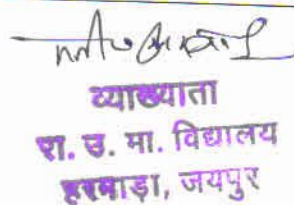 व्याख्याता
रा. उ. मा. विद्यालय
हरमाड़ा, जयपुर